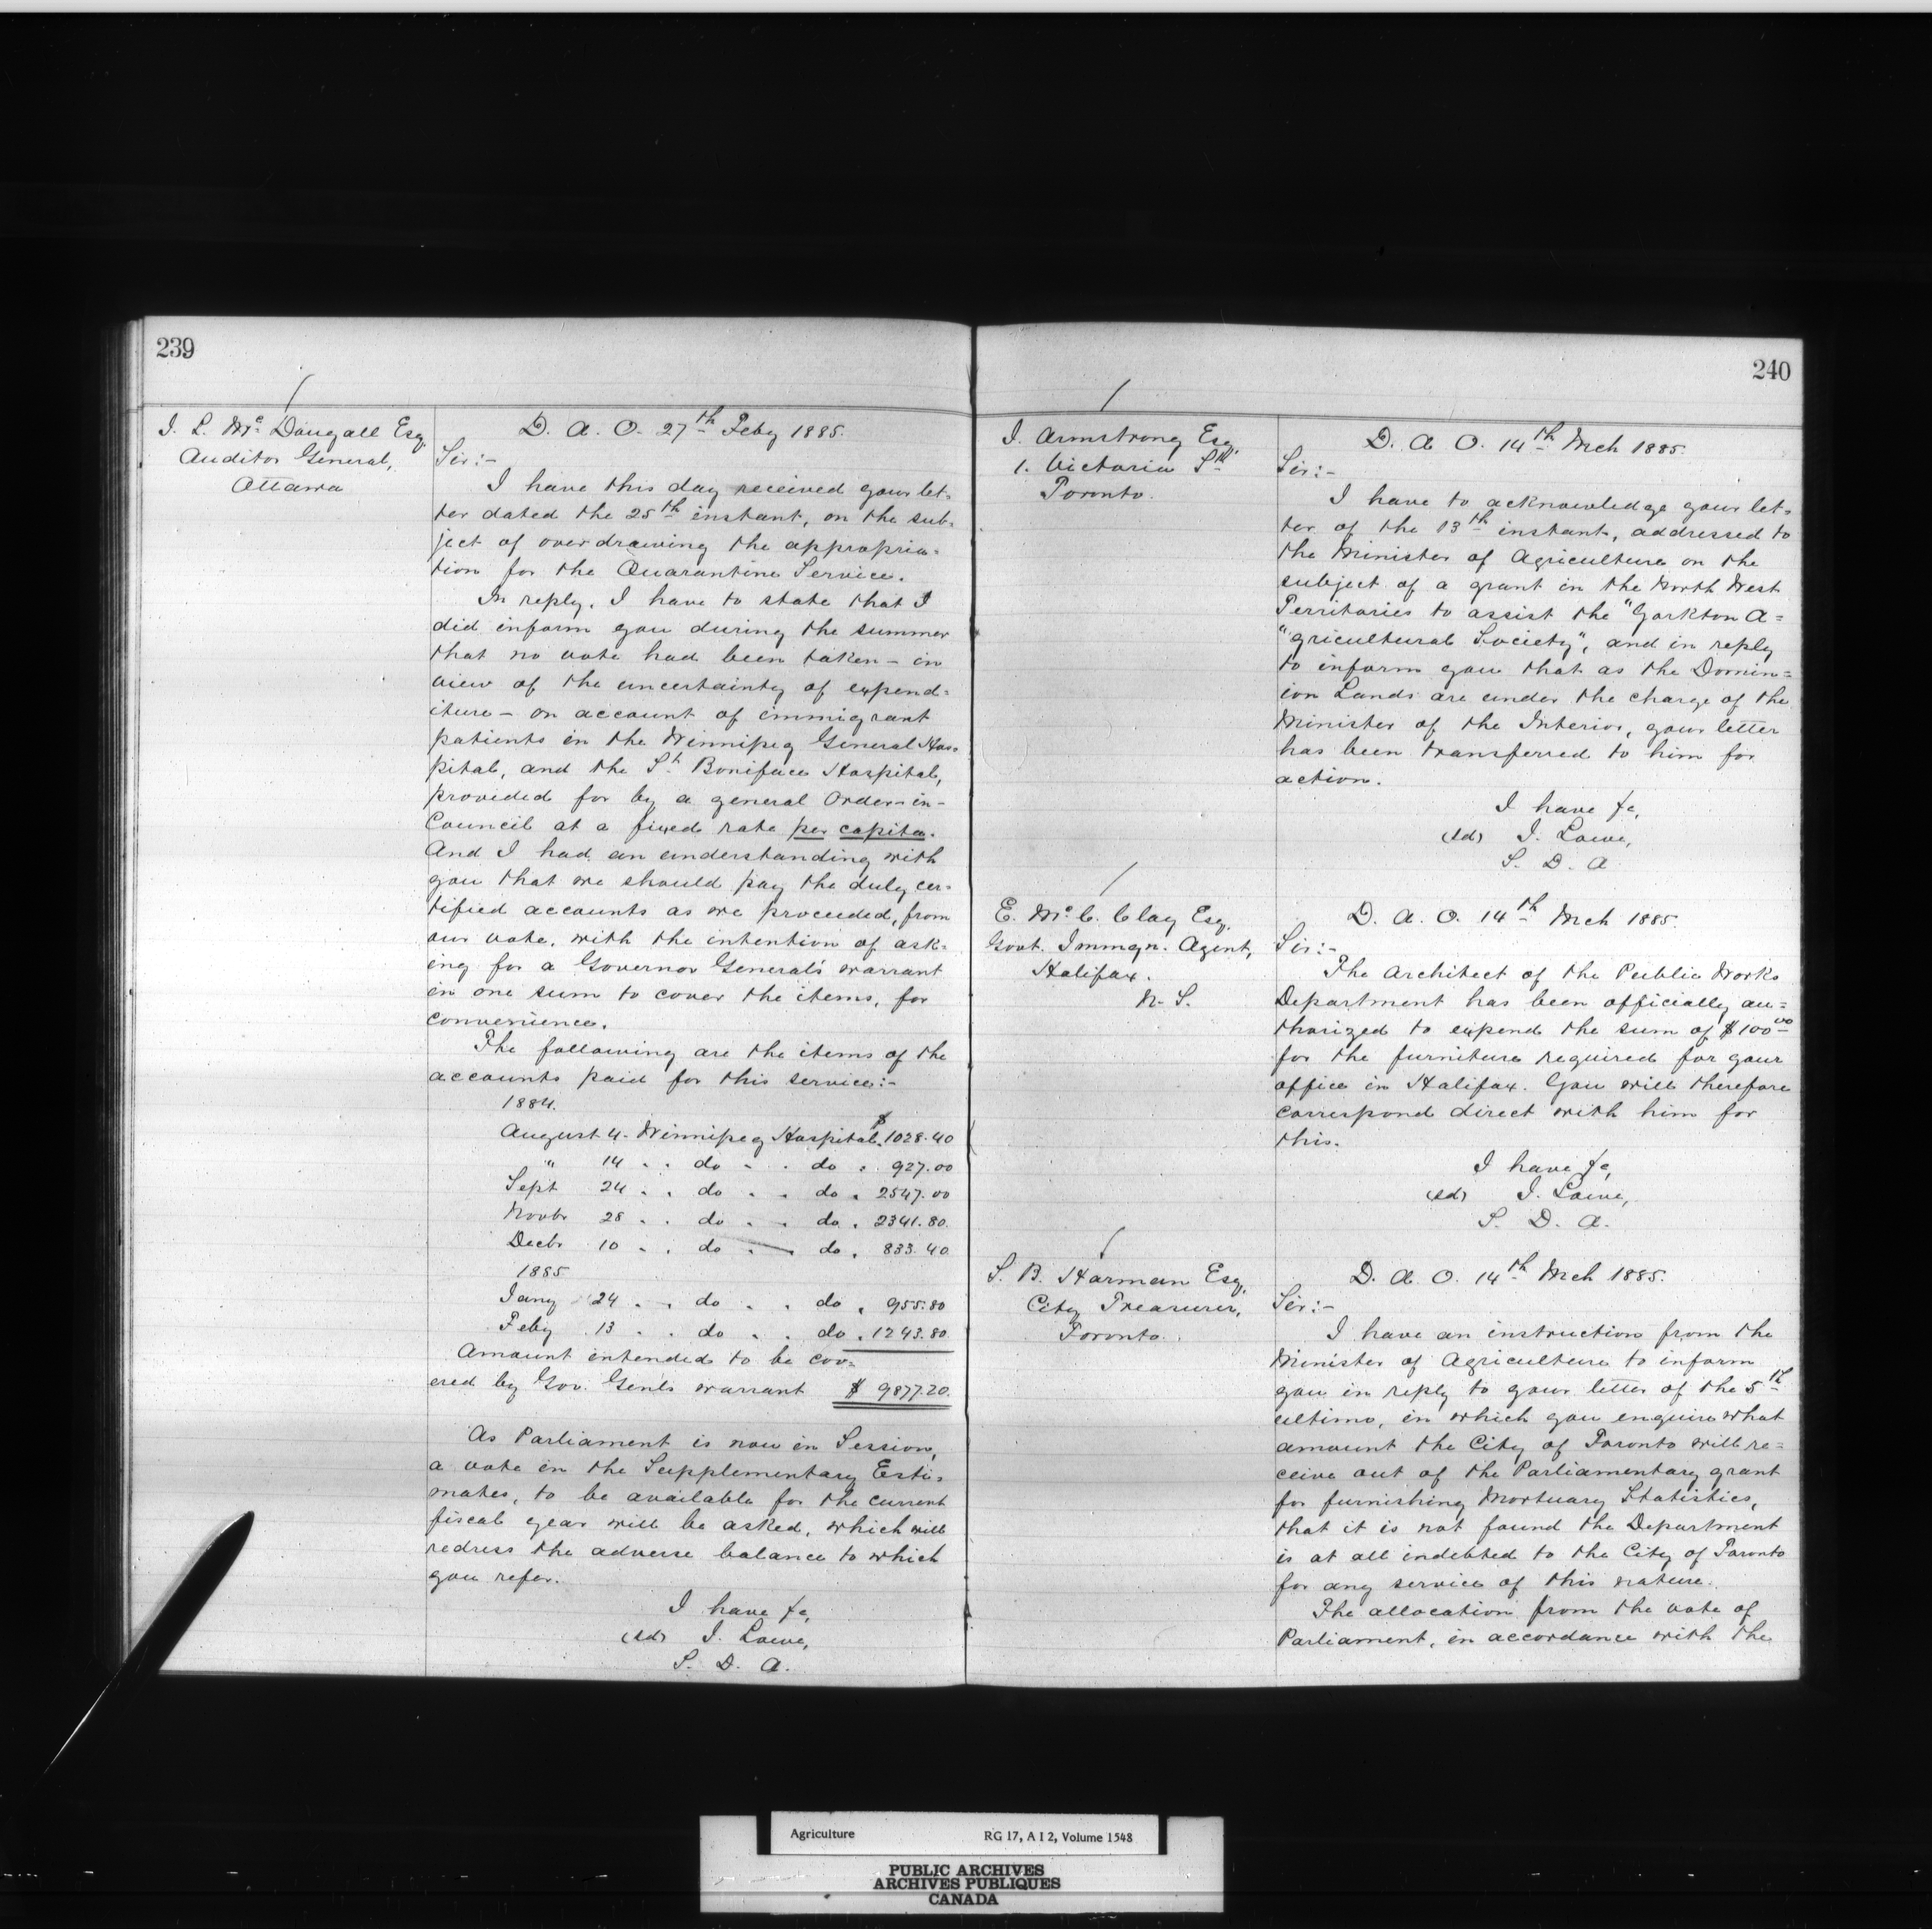 239
J. L. Mc Dougall Esq.
Auditor General,
Ottawa
D. A. O. 27th Feby 1885.
Sir:-
I have this day received your let-
ter dated the 25th instant, on the sub-
ject of overdrawing the appropria-
tion for the Quarantine Service.
In reply, I have to state that I
did inform you during the summer
that no vote had been taken - in
view of the uncertainty of expend-
iture - on account of immigrant
patients in the Winnipeg General Hos-
pital, and the St. Boniface Hospital,
provided for by a general Order-in-
Council at a fixed rate per capita.
And I had an understanding with
you that we should pay the duly cer-
tified accounts as we proceeded, from
our vote, with the intention of ask-
ing for a Governor General's warrant
in one sum to cover the items, for
convenience.
The following are the items of the
accounts paid for this service:-
1884.
August 4. Winnipeg Hospital. $1028.40
" 14 . . do . . do . 927.00
Sept 24 . . do . . do . 2547.00
Novbr 28 . . do . . do . 2341.80
Decbr 10 . . do . . do . 833.40
1885
Jany 24 . . do . . do . 955.80
Feby 13 . . do . . do . 1243.80
Amount intended to be cov-
ered by Gov. Genls warrant $ 9877.20.
As Parliament is now in Session,
a vote in the Supplementary Esti-
mates, to be available for the current
fiscal year will be asked, which will
redress the adverse balance to which
you refer.
I have &c,
(sd) J. Lowe,
S. D. A.
240
J. Armstrong Esq.
1. Victoria St.
Toronto.
D. A. O. 14th Mch 1885.
Sir:-
I have to acknowledge your let-
ter of the 13th instant, addressed to
the Minister of Agriculture on the
subject of a grant in the North West
Territories to assist the "Yorkton A-
"gricultural Society", and in reply
to inform you that as the Domin-
ion Lands are under the charge of the
Minister of the Interior, your letter
has been transferred to him for
action.
I have &c,
(sd) J. Lowe,
S. D. A
E. Mc C. Clay Esq.
Govt. Immgn. Agent,
Halifax.
N. S.
D. A. O. 14th Mch 1885.
Sir:-
The Architect of the Public Works
Department has been officially au-
thorized to expend the sum of $100.00
for the furniture required for your
office in Halifax. You will therefore
correspond direct with him for
this.
I have &c,
(sd) J. Lowe,
S. D. A.
S. B. Harman Esq.
City Treasurer,
Toronto.
D. A. O. 14th Mch 1885.
Sir:-
I have an instruction from the
Minister of Agriculture to inform
you in reply to your letter of the 5th
ultimo, in which you enquire what
amount the City of Toronto will re-
ceive out of the Parliamentary grant
for furnishing Mortuary Statistics,
that it is not found the Department
is at all indebted to the City of Toronto
for any service of this nature.
The allocation from the vote of
Parliament, in accordance with the
Agriculture RG 17, A I 2, Volume 1548
PUBLIC ARCHIVES
ARCHIVES PUBLIQUES
CANADA